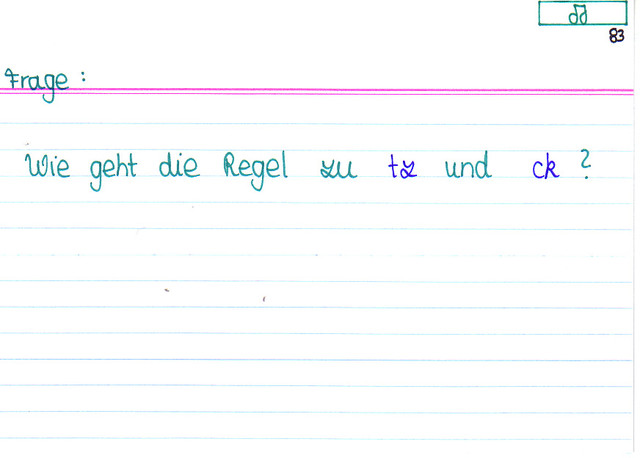 83
Frage:
Wie geht die Regel zu tz und ck?